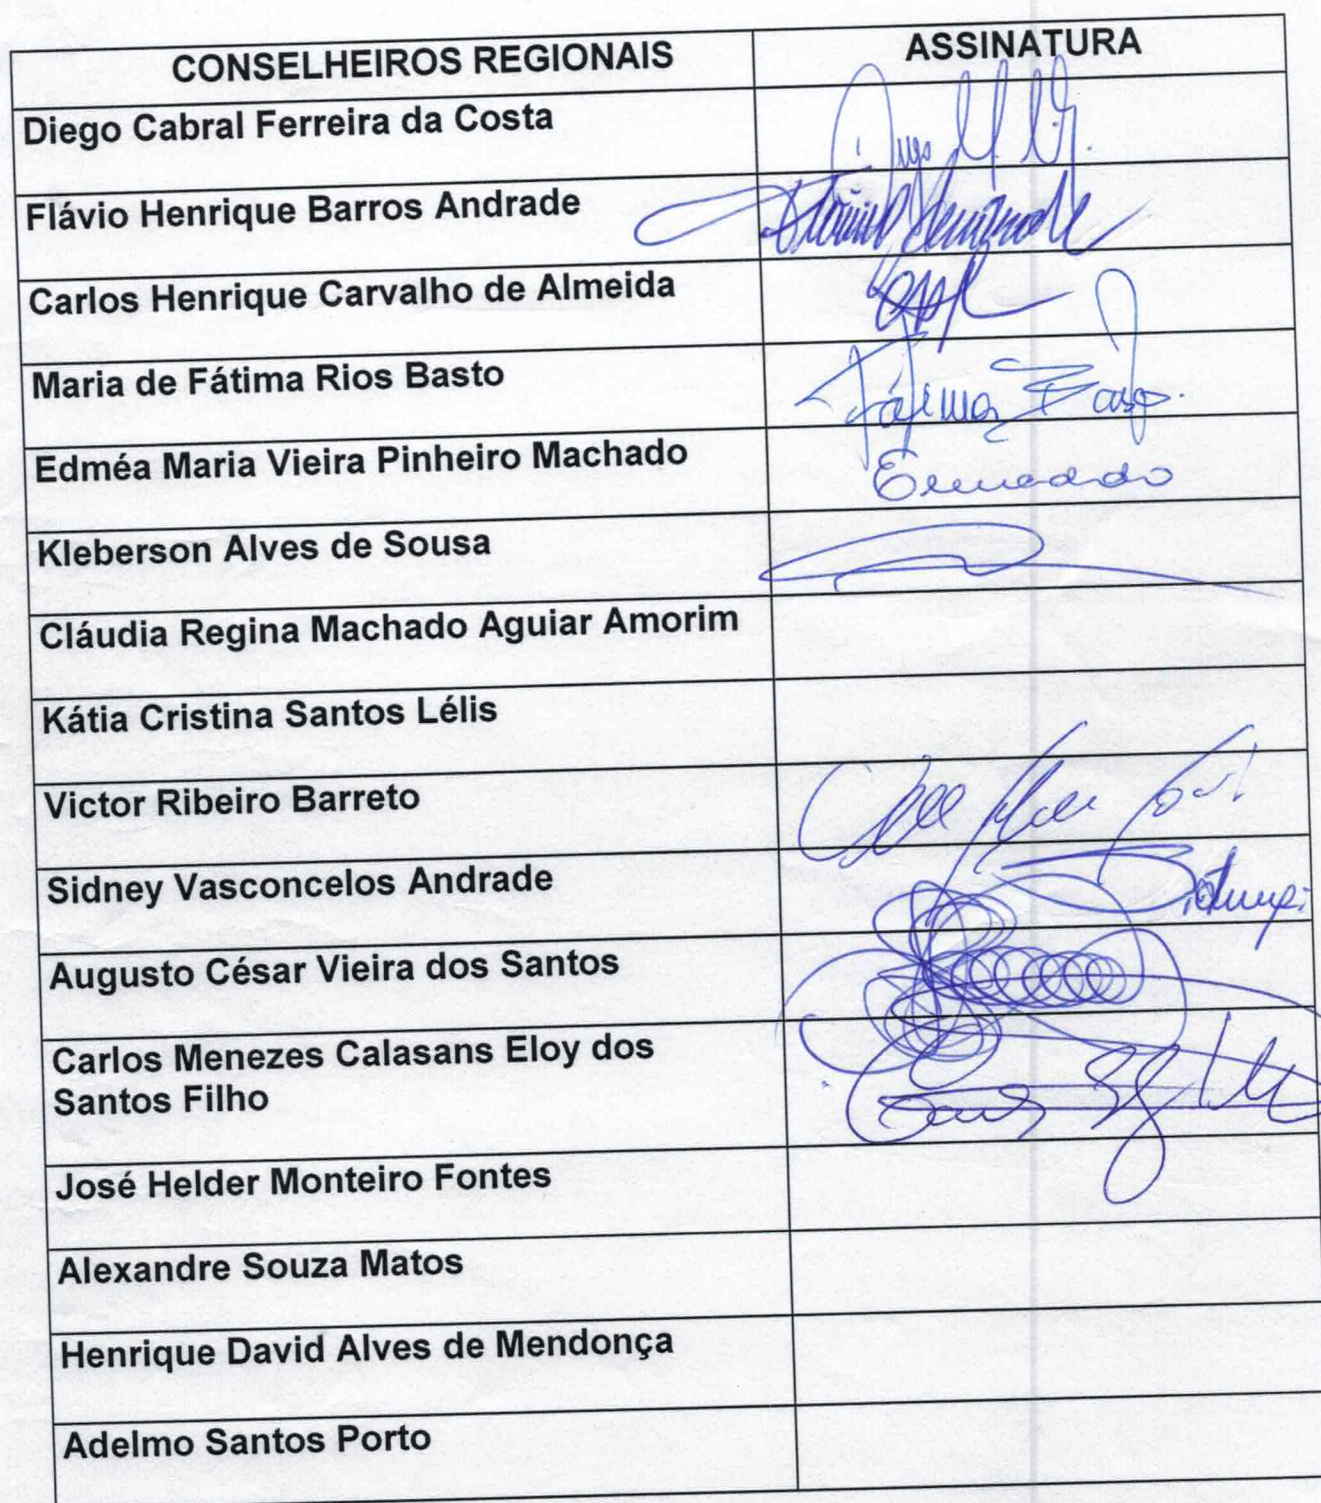 CONSELHEIROS REGIONAIS ASSINATURA
Diego Cabral Ferreira da Costa
Flávio Henrique Barros Andrade
Carlos Henrique Carvalho de Almeida
Maria de Fátima Rios Basto Fátima Basto
Edméa Maria Vieira Pinheiro Machado Emachado
Kleberson Alves de Sousa
Cláudia Regina Machado Aguiar Amorim
Kátia Cristina Santos Lélis
Victor Ribeiro Barreto
Sidney Vasconcelos Andrade
Augusto César Vieira dos Santos
Carlos Menezes Calasans Eloy dos
Santos Filho
José Helder Monteiro Fontes
Alexandre Souza Matos
Henrique David Alves de Mendonça
Adelmo Santos Porto